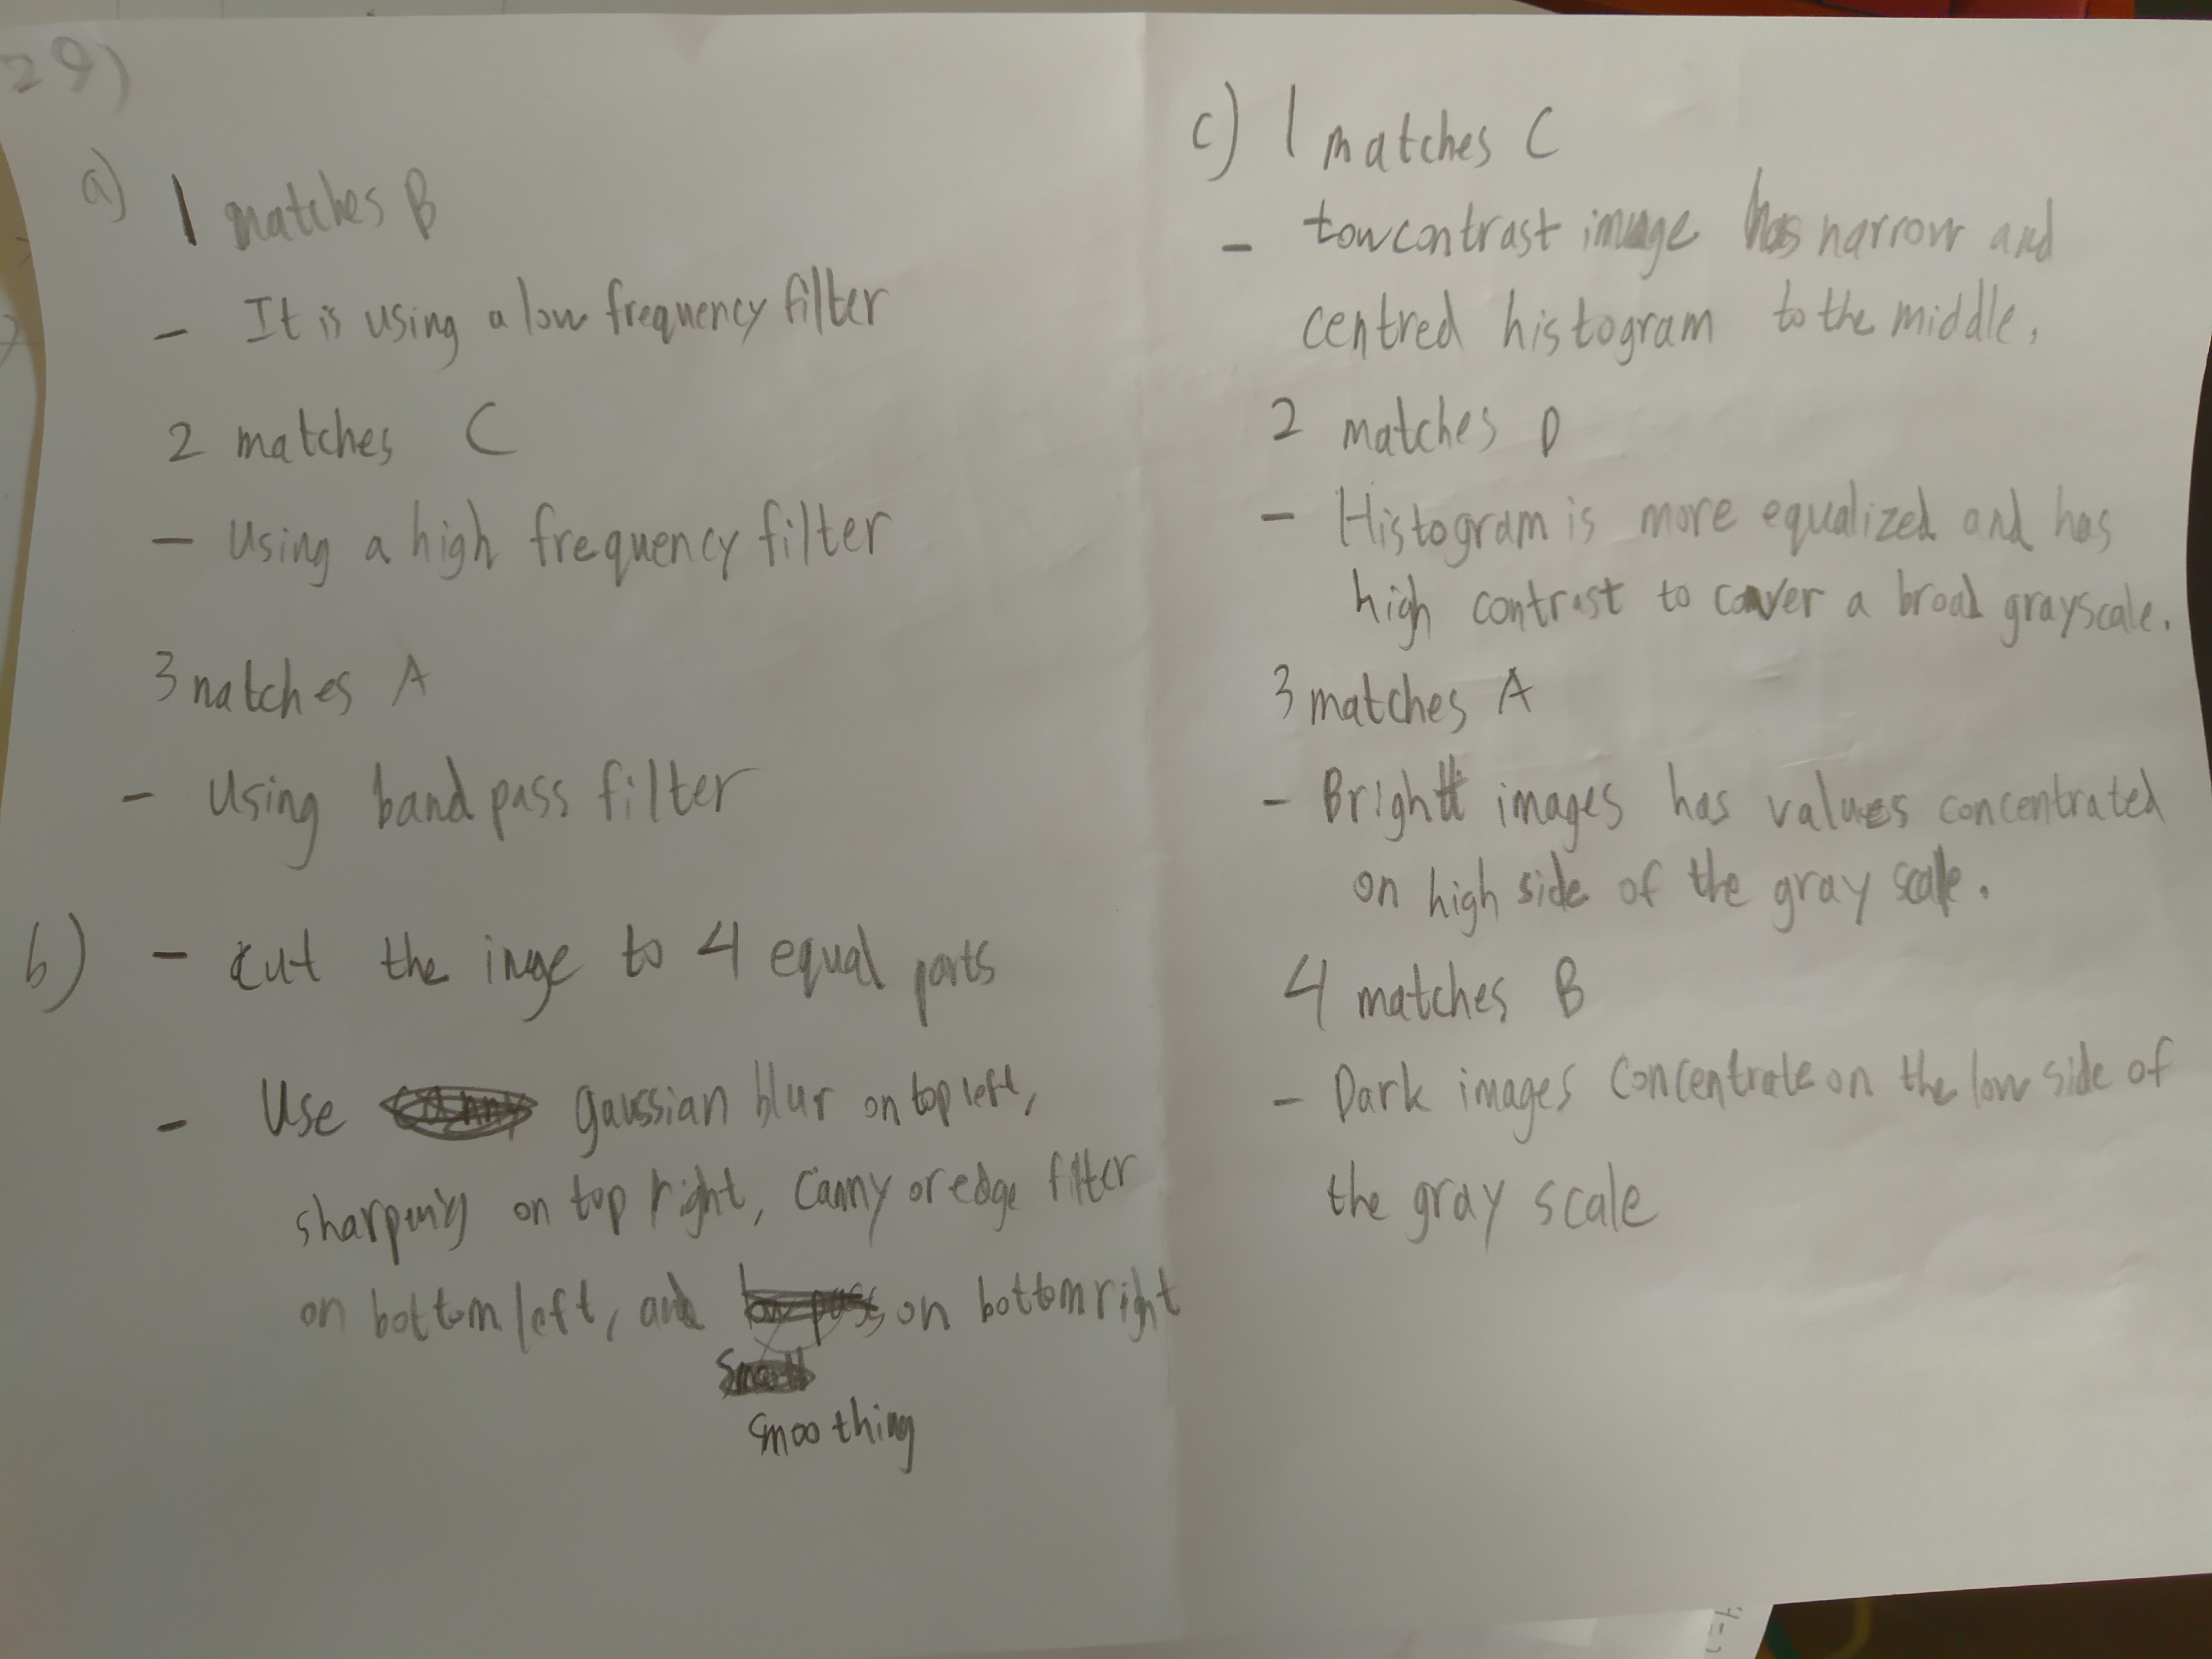 29)
a) 1 matches B
- It is using a low frequency filter
2 matches C
- Using a high frequency filter
3 matches A
- Using band pass filter
b) - cut the imge to 4 equal parts
- Use gaussian blur on top left,
sharpening on top right, Canny or edge filter
on bottom left, and on bottom right
smoothing
c) 1 matches C
- low contrast image has narrow and
centred histogram to the middle.
2 matches D
- Histogram is more equalized and has
high contrast to cover a broad grayscale.
3 matches A
- Bright images has values concentrated
on high side of the gray scale.
4 matches B
- Dark images concentrate on the low side of
the gray scale